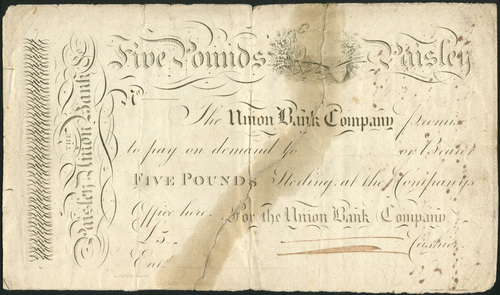 Five Pounds Paisley
THE
Paisley Union Bank
No
The Union Bank Company promise
to pay on demand to or Bearer
FIVE POUNDS Sterling at the Companys
Office here. For the Union Bank Company
£5 Cashier
Entd